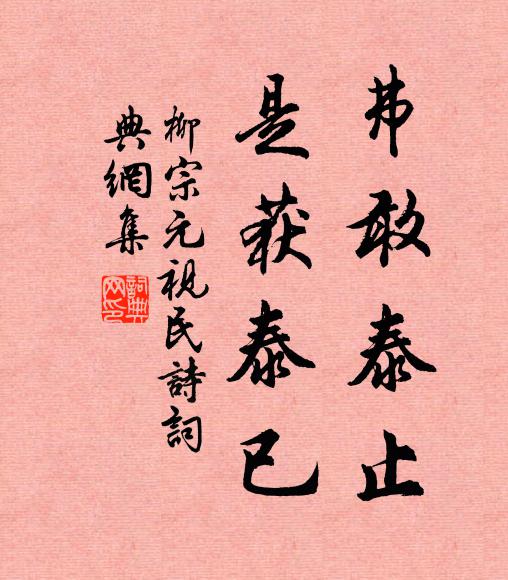 弗敢泰止
是获泰已
柳宗元視民詩詞
典網集
詞典
网印